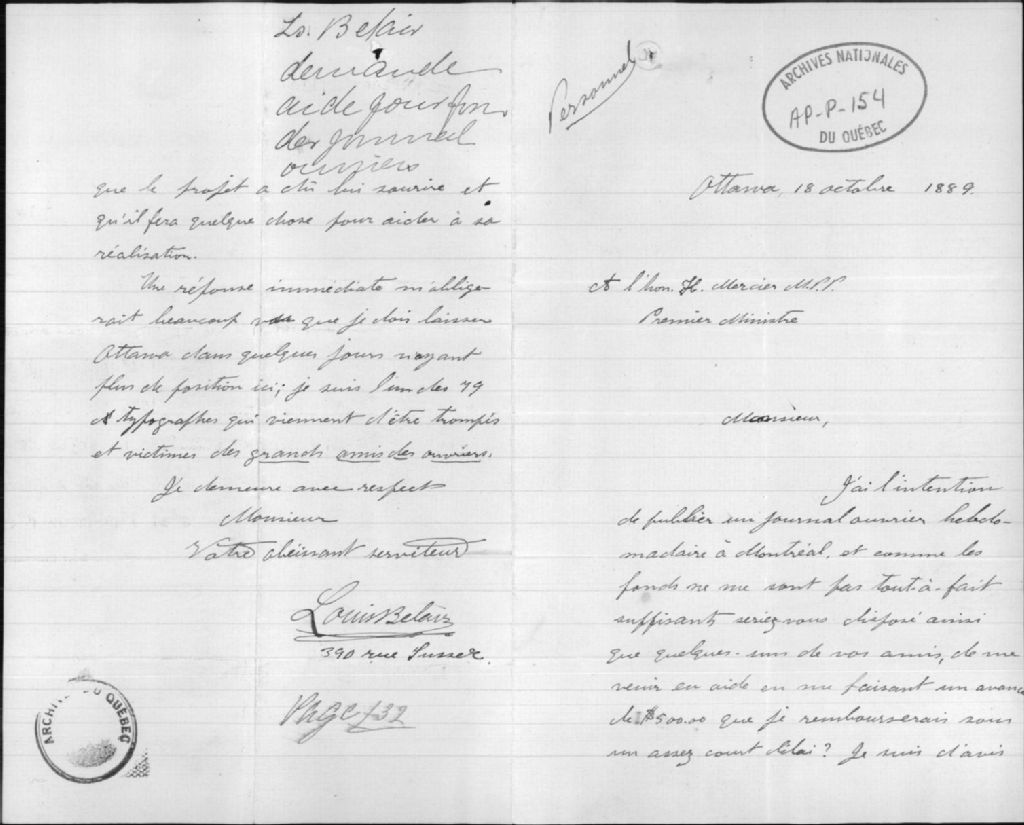 Ls. Belair
demande
aide pour fon
der journal
ouvriers
que le projet a dû lui sourire et
qu'il fera quelque chose pour aider à sa
réalisation.
Une réponse immédiate m'oblige
rait beaucoup vu que je dois laisser
Ottawa dans quelques jours n'ayant
plus de position ici; je suis l'un des 79
typographes qui viennent d'être trompés
et victimes des grands amis des ouvriers.
Je demeure avec respect
Monsieur
Votre obéissant serviteur
Louis Belair
390 rue Sussex.
ARCHIVES DU QUÉBEC
Personnel
ARCHIVES NATIONALES
AP-P-154
DU QUÉBEC
Ottawa, 18 octobre 1889.
A l'hon. H. Mercier M.P.P.
Premier Ministre
Monsieur,
J'ai l'intention
de publier un journal ouvrier hebdo-
madaire à Montréal, et comme les
fonds ne me sont pas tout-à-fait
suffisants seriez vous disposé ainsi
que quelques-uns de vos amis, de me
venir en aide en me faisant un avance
de $500.00 que je rembourserais sous
un assez court délai? Je suis d'avis